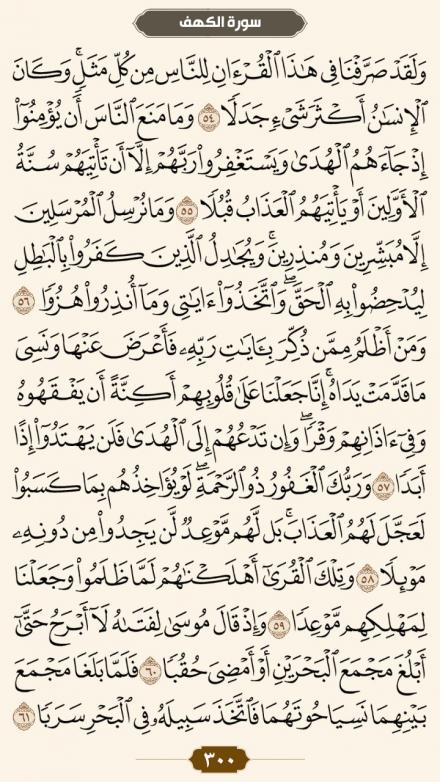 سورة الكهف
وَلَقَدْ صَرَّفْنَا فِى هَٰذَا ٱلْقُرْءَانِ لِلنَّاسِ مِن كُلِّ مَثَلٍ ۚ وَكَانَ
ٱلْإِنسَٰنُ أَكْثَرَ شَىْءٍ جَدَلًا ٥٤ وَمَا مَنَعَ ٱلنَّاسَ أَن يُؤْمِنُوٓا۟
إِذْ جَآءَهُمُ ٱلْهُدَىٰ وَيَسْتَغْفِرُوا۟ رَبَّهُمْ إِلَّآ أَن تَأْتِيَهُمْ سُنَّةُ
ٱلْأَوَّلِينَ أَوْ يَأْتِيَهُمُ ٱلْعَذَابُ قُبُلًا ٥٥ وَمَا نُرْسِلُ ٱلْمُرْسَلِينَ
إِلَّا مُبَشِّرِينَ وَمُنذِرِينَ ۚ وَيُجَٰدِلُ ٱلَّذِينَ كَفَرُوا۟ بِٱلْبَٰطِلِ
لِيُدْحِضُوا۟ بِهِ ٱلْحَقَّ ۖ وَٱتَّخَذُوٓا۟ ءَايَٰتِى وَمَآ أُنذِرُوا۟ هُزُوًا ٥٦
وَمَنْ أَظْلَمُ مِمَّن ذُكِّرَ بِـَٔايَٰتِ رَبِّهِۦ فَأَعْرَضَ عَنْهَا وَنَسِىَ
مَا قَدَّمَتْ يَدَاهُ ۚ إِنَّا جَعَلْنَا عَلَىٰ قُلُوبِهِمْ أَكِنَّةً أَن يَفْقَهُوهُ
وَفِىٓ ءَاذَانِهِمْ وَقْرًا ۖ وَإِن تَدْعُهُمْ إِلَى ٱلْهُدَىٰ فَلَن يَهْتَدُوٓا۟ إِذًا
أَبَدًا ٥٧ وَرَبُّكَ ٱلْغَفُورُ ذُو ٱلرَّحْمَةِ ۖ لَوْ يُؤَاخِذُهُم بِمَا كَسَبُوا۟
لَعَجَّلَ لَهُمُ ٱلْعَذَابَ ۚ بَل لَّهُم مَّوْعِدٌ لَّن يَجِدُوا۟ مِن دُونِهِۦ
مَوْئِلًا ٥٨ وَتِلْكَ ٱلْقُرَىٰٓ أَهْلَكْنَٰهُمْ لَمَّا ظَلَمُوا۟ وَجَعَلْنَا
لِمَهْلِكِهِم مَّوْعِدًا ٥٩ وَإِذْ قَالَ مُوسَىٰ لِفَتَىٰهُ لَآ أَبْرَحُ حَتَّىٰٓ
أَبْلُغَ مَجْمَعَ ٱلْبَحْرَيْنِ أَوْ أَمْضِىَ حُقُبًا ٦٠ فَلَمَّا بَلَغَا مَجْمَعَ
بَيْنِهِمَا نَسِيَا حُوتَهُمَا فَٱتَّخَذَ سَبِيلَهُۥ فِى ٱلْبَحْرِ سَرَبًا ٦١
٣٠٠